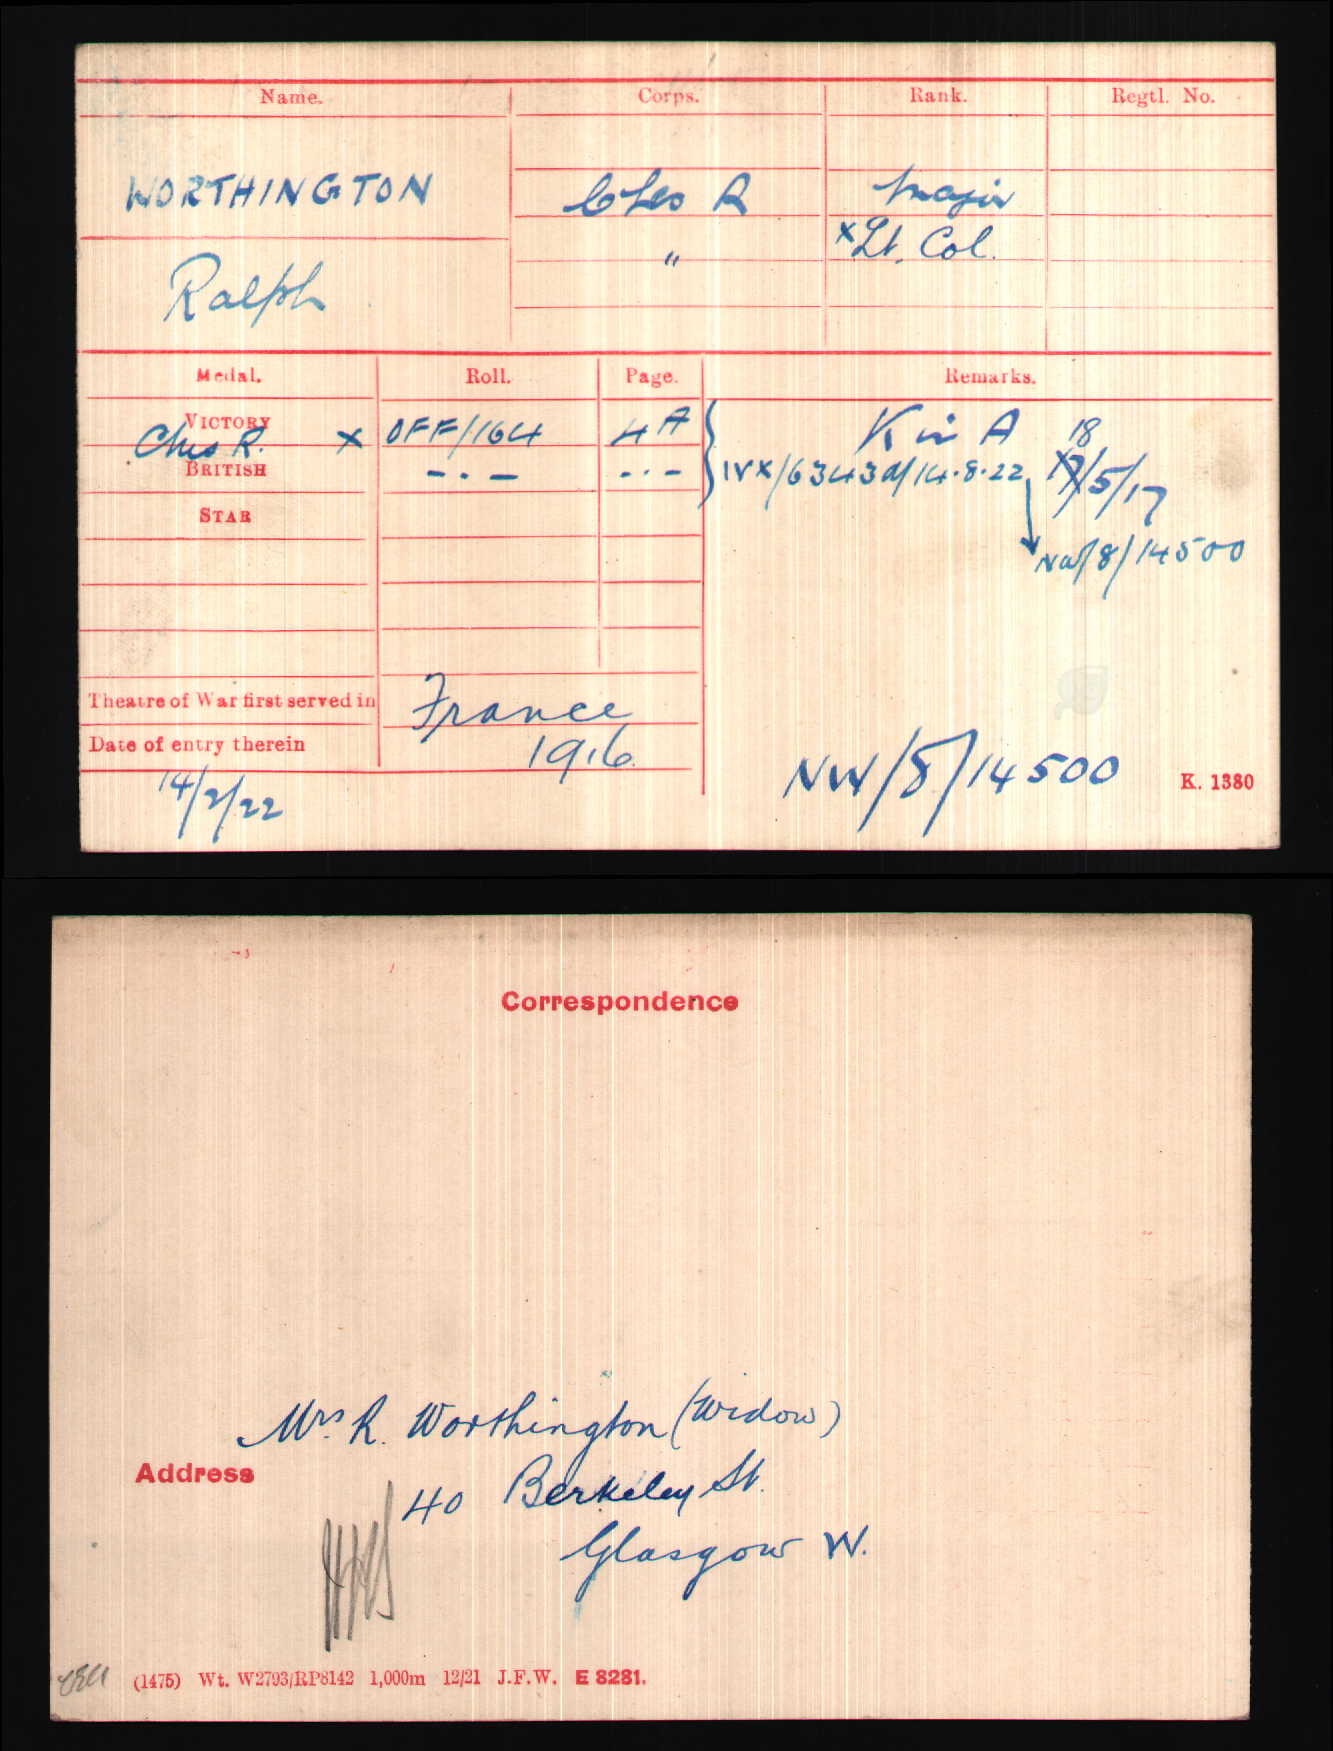 Name. Corps. Rank. Regtl. No.
WORTHINGTON Ches R Major
" x Lt. Col.
Ralph
Medal. Roll. Page. Remarks.
VICTORY x OFF/164 4 A K in A 18
Ches R.
BRITISH -.- -.- IVX/6343a/14.8.22 17/5/17
STAR
NW/8/14500
Theatre of War first served in France
Date of entry therein 1916
14/2/22 NW/8/14500 K. 1380
Correspondence
Mrs. R. Worthington (Widow)
Address
40 Berkeley St.
Glasgow W.
(1475) Wt. W2793/RP8142 1,000m 12/21 J.F.W. E 8281.